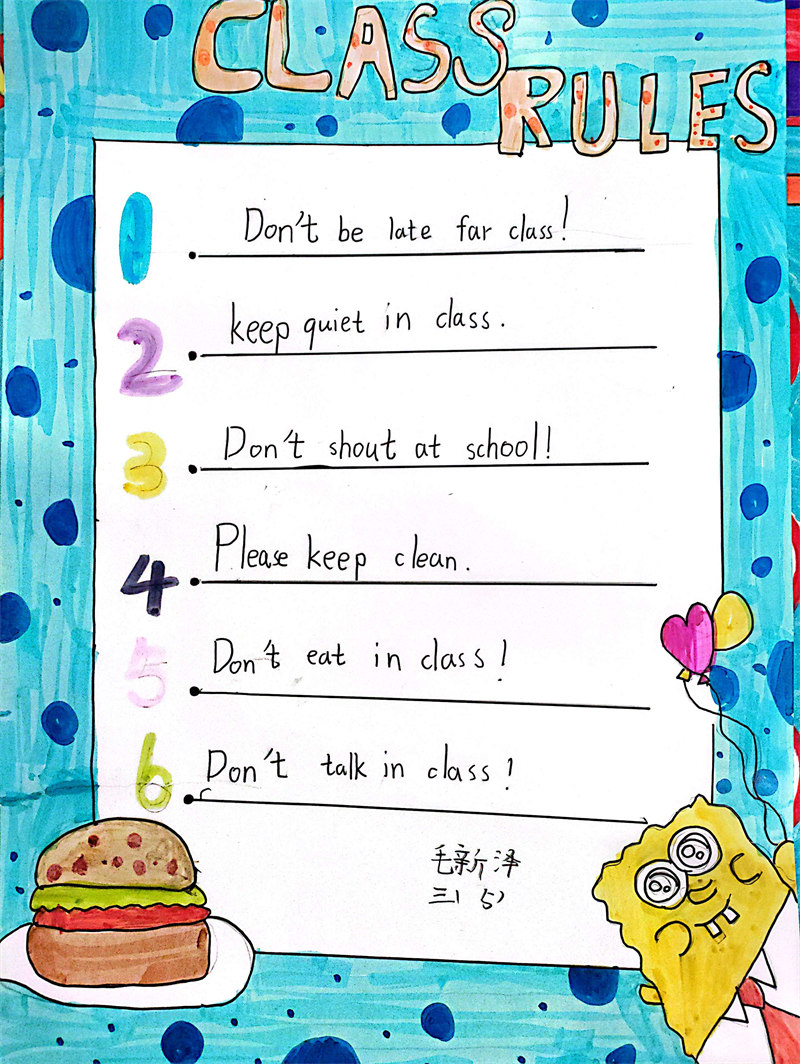 CLASS
RULES
1 Don't be late far class!
2 keep quiet in class.
3 Don't shout at school!
4 Please keep clean.
5 Don't eat in class!
6 Don't talk in class!
毛新泽
三(5)